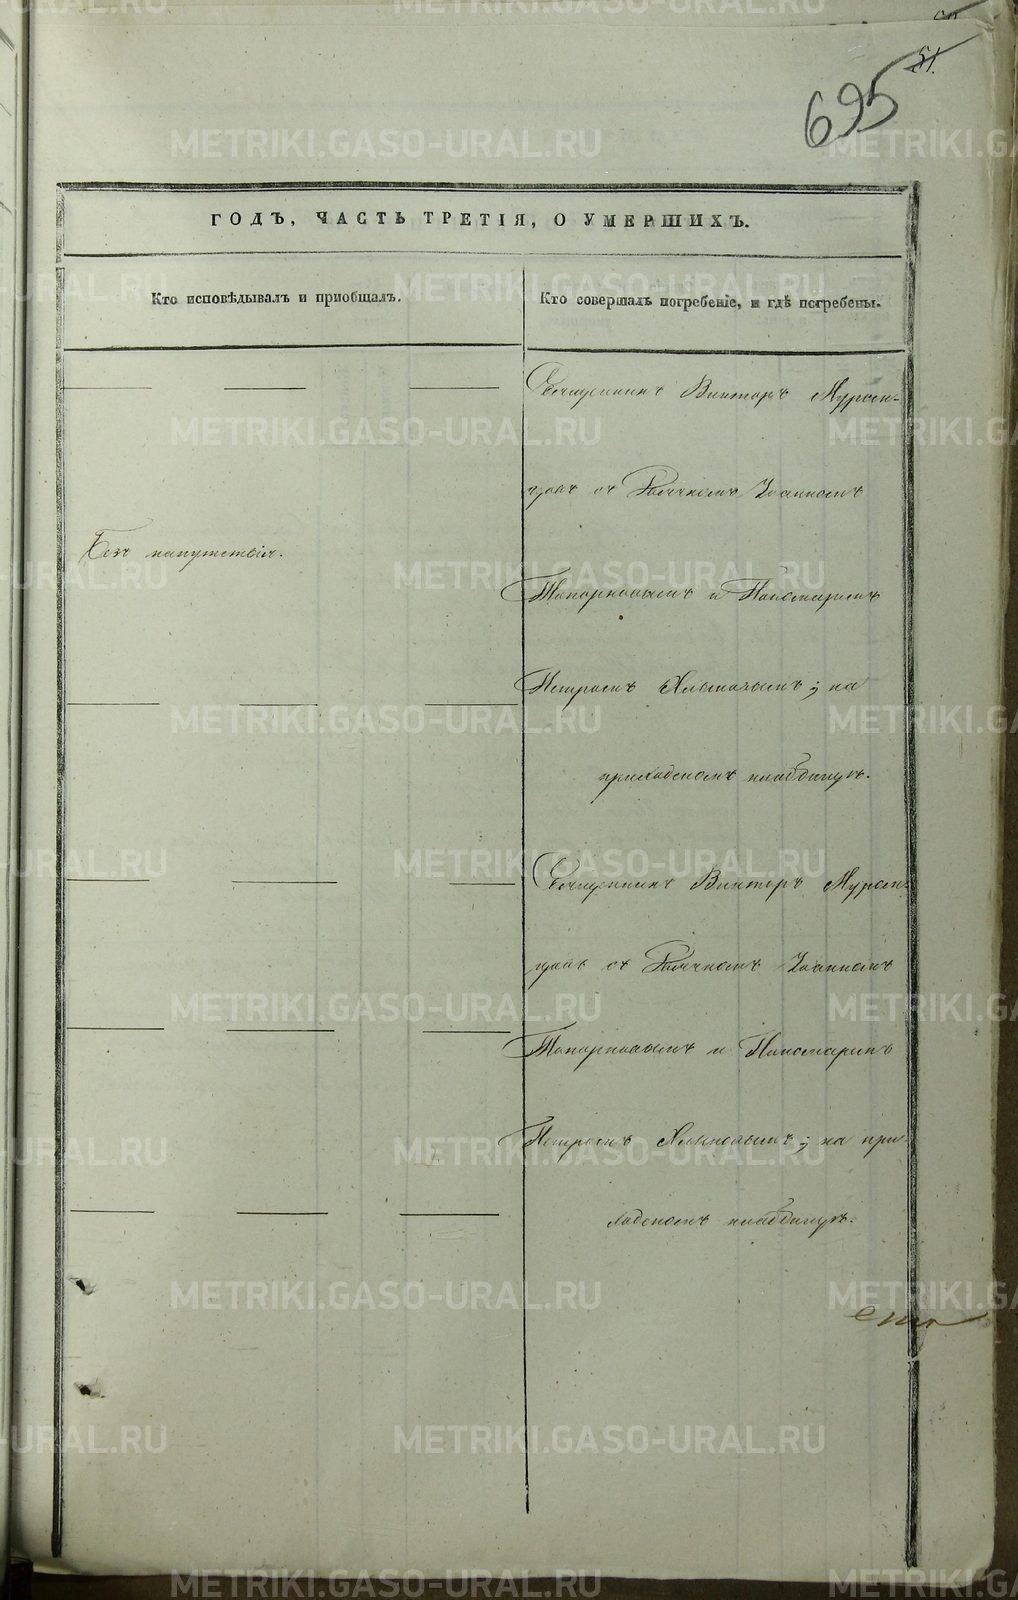 51.
695
ГОДЪ, ЧАСТЬ ТРЕТІЯ, О УМЕРШИХЪ.
Кто исповѣдывалъ и пріобщалъ.
Кто совершалъ погребеніе, и гдѣ погребены.
Священникъ Викторъ
съ Іоанномъ
Безъ напутствія.
Топорковымъ и Пономаремъ
Петромъ ; на
приходскомъ кладбищѣ.
Священникъ Викторъ
съ Іоанномъ
Топорковымъ и Пономаремъ
Петромъ ; на при-
ходскомъ кладбищѣ.
METRIKI.GASO-URAL.RU